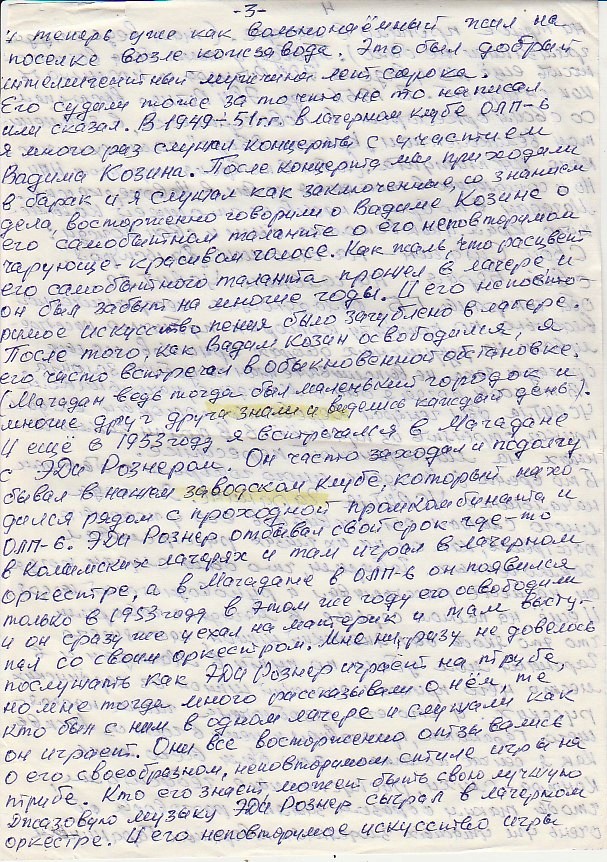 -3-
и теперь уже как вольнонаёмный жил на
поселке возле кожзавода. Это был добрый
интеллигентный мужчина лет сорока.
Его судили тоже за то что не то написал
или сказал. В 1949-51гг. в лагерном клубе ОЛП-6
я много раз слушал концерты с участием
Вадима Козина. После концерта мы приходили
в барак и я слушал как заключенные, со знанием
дела, восторженно говорили о Вадиме Козине о
его самобытном таланте о его неповторимом
чарующе-красивом голосе. Как жаль, что расцвет
его самобытного таланта прошел в лагере и
он был забыт на многие годы. И его неповто-
римое искусство пения было загублено в лагере.
После того, как Вадим Козин освободился, я
его часто встречал в обыкновенной обстановке.
(Магадан ведь тогда был маленький городок и
многие друг друга знали и виделись каждый день).
И ещё в 1953 году я встречался в Магадане
с Эди Рознером. Он часто заходил и подолгу
бывал в нашем заводском клубе, который нахо
дился рядом с проходной промкомбината и
ОЛП-6. Эди Рознер отбывал свой срок где-то
в Колымских лагерях и там играл в лагерном
оркестре, а в Магадане в ОЛП-6 он появился
только в 1953 году в этом же году его освободили
и он сразу же уехал на материк и там высту-
пал со своим оркестром. Мне ни разу не довелось
послушать как Эди Рознер играет на трубе,
но мне тогда много рассказывали о нём, те
кто был с ним в одном лагере и слушали как
он играет. Они все восторженно отзывались
о его своеобразном, неповторимом стиле игры на
трубе. Кто его знает, может быть свою лучшую
джазовую музыку Эди Рознер сыграл в лагерном
оркестре. И его неповторимое искусство игры